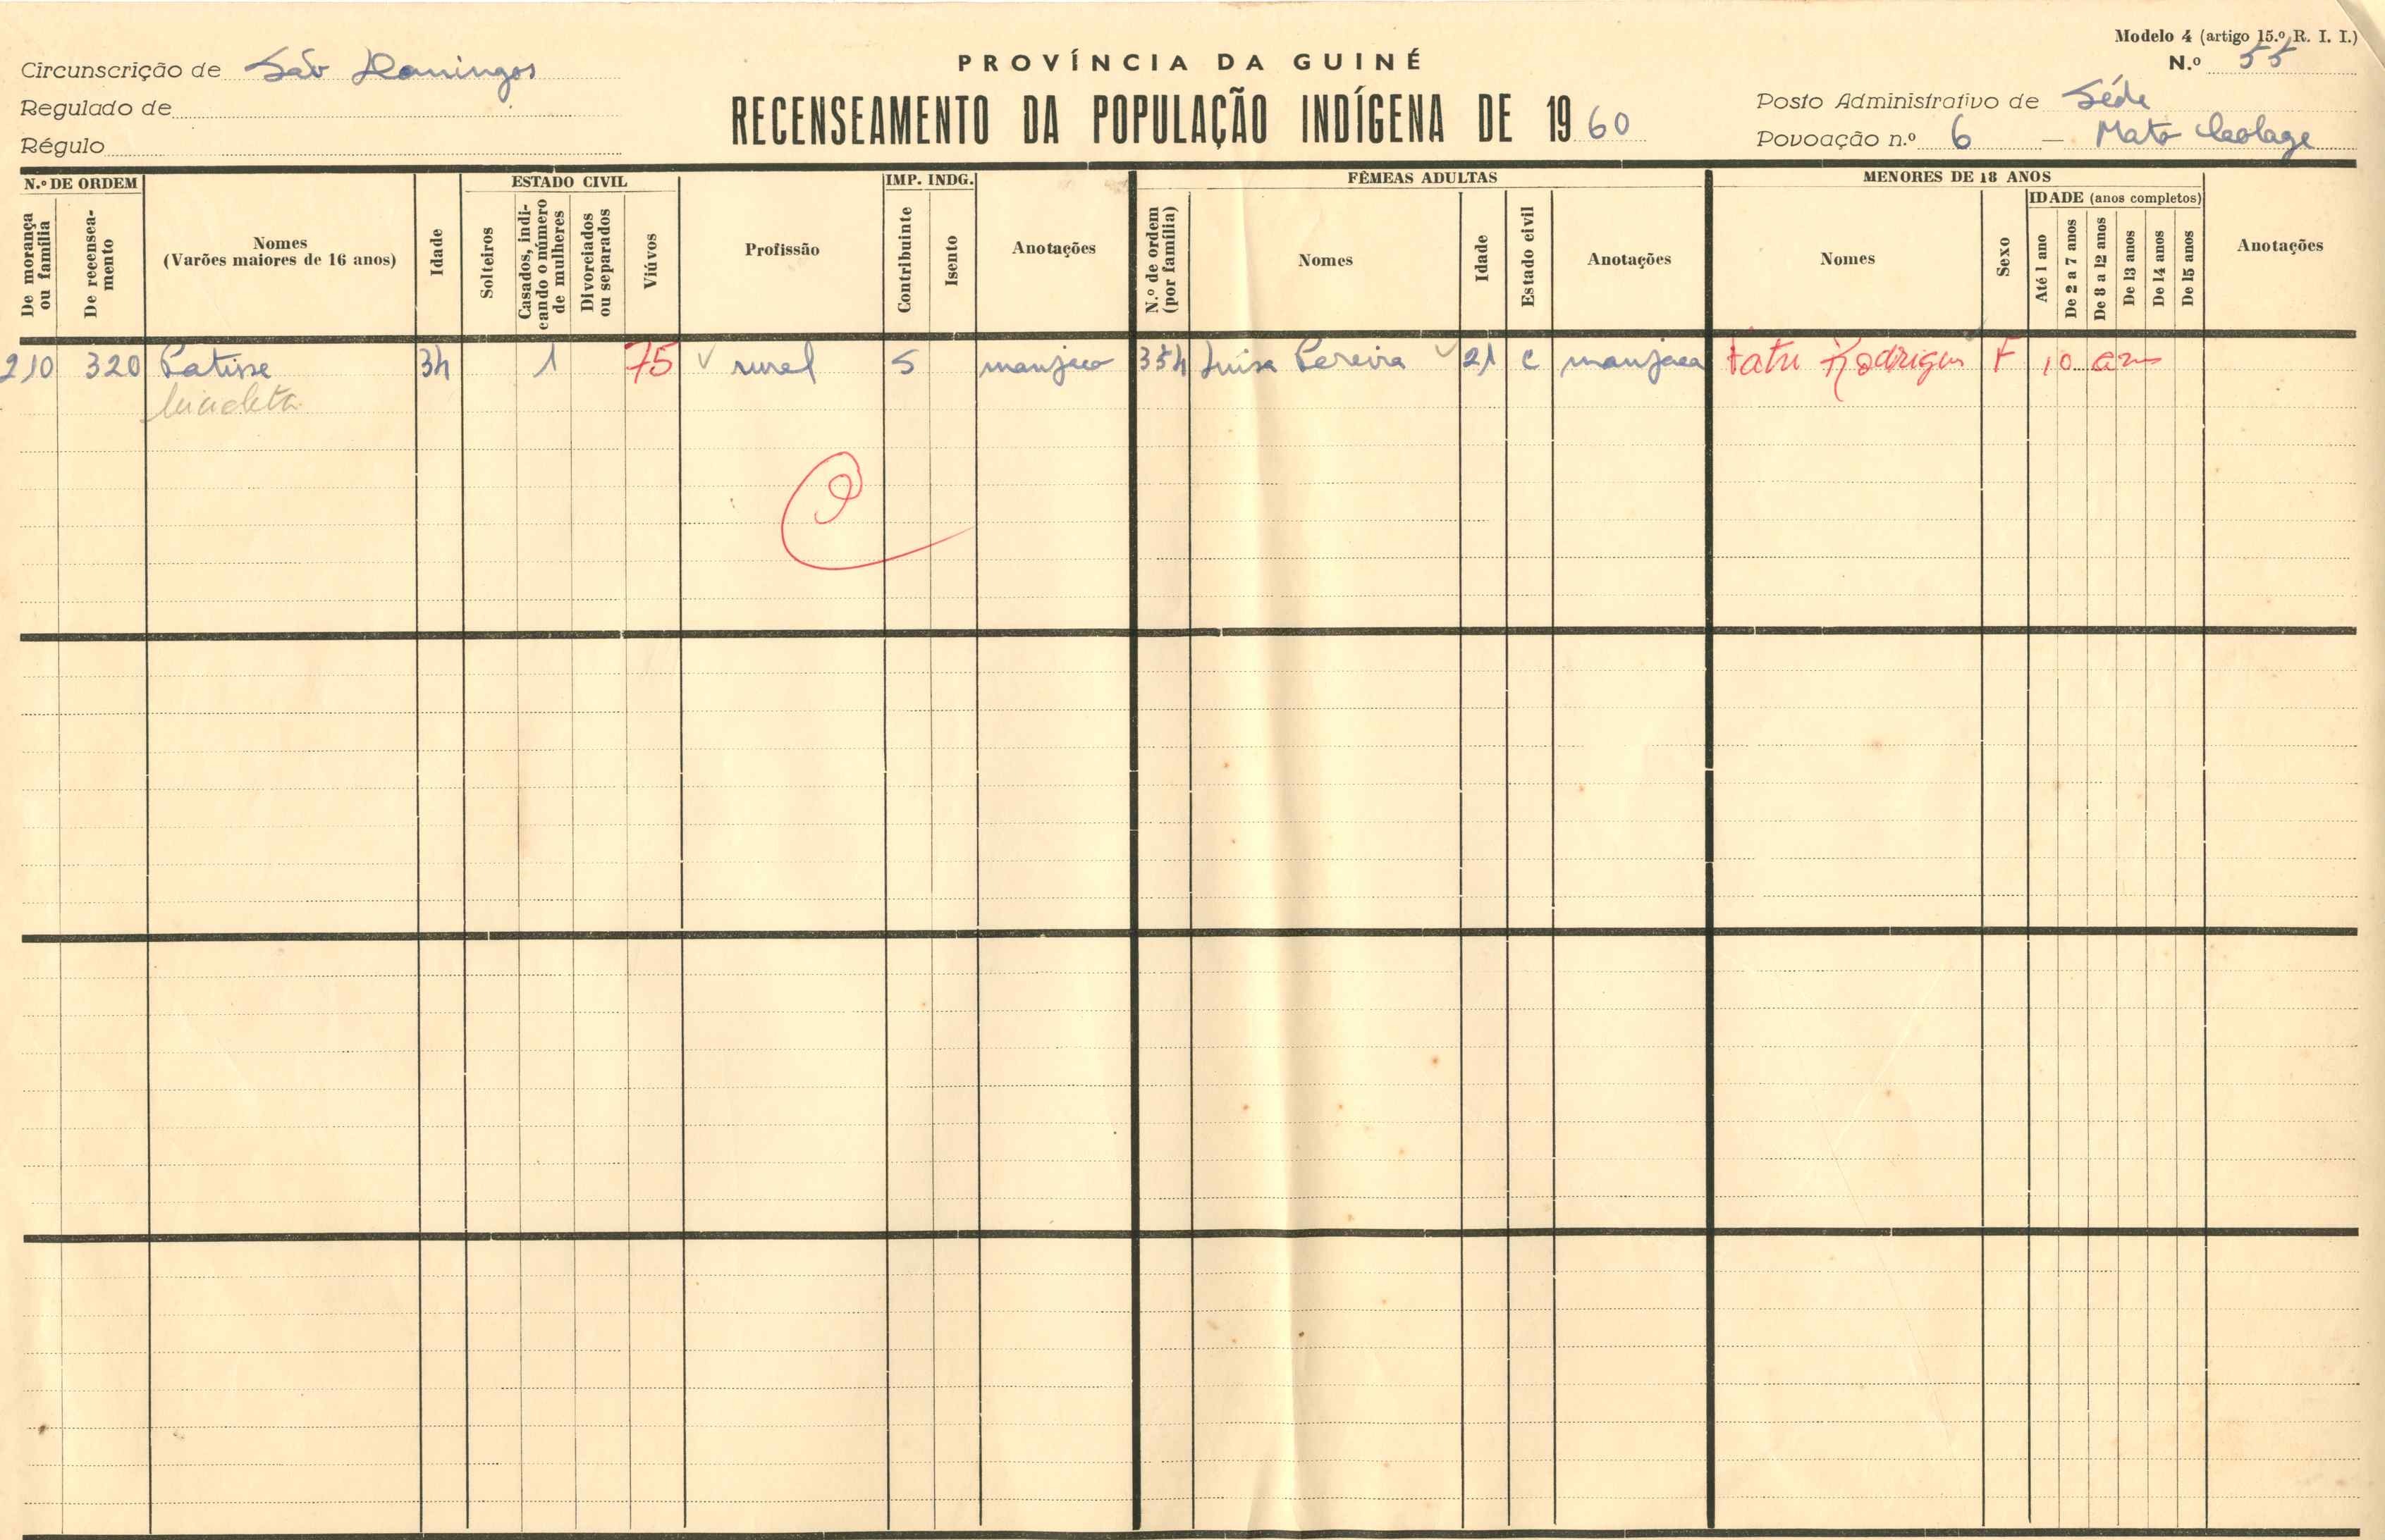 Modelo 4 (artigo 15.º R. I. I.)
N.º 55
PROVÍNCIA DA GUINÉ
RECENSEAMENTO DA POPULAÇÃO INDÍGENA DE 1960
Circunscrição de São Domingos
Regulado de
Régulo
Posto Administrativo de Séde
Povoação n.º 6 — Mato
N.º DE ORDEM
De morança ou família
De recenseamento
Nomes
(Varões maiores de 16 anos)
Idade
ESTADO CIVIL
Solteiros
Casados, indicando o número de mulheres
Divorciados ou separados
Viúvos
Profissão
IMP. INDG.
Contribuinte
Isento
Anotações
FÊMEAS ADULTAS
N.º de ordem (por família)
Nomes
Idade
Estado civil
Anotações
MENORES DE 18 ANOS
Nomes
Sexo
IDADE (anos completos)
Até 1 ano
De 2 a 7 anos
De 8 a 12 anos
De 13 anos
De 14 anos
De 15 anos
Anotações
210 320 Patisse 34 1 75 rural S manjaco 354 Luisa Pereira 21 C manjaca Fatu Rodrigues F 10 anos